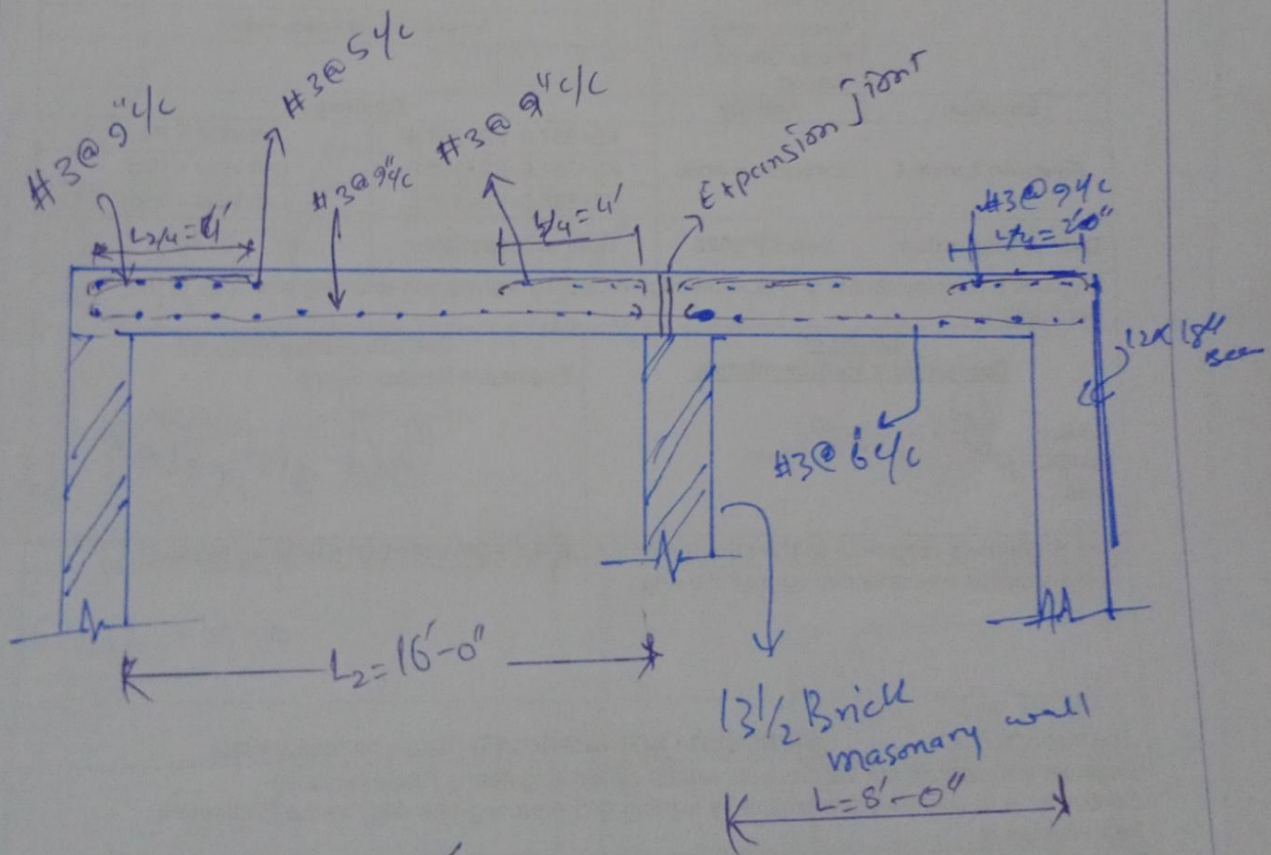 #3@9"c/c
#3@5c/c
#3@9"c/c
Expansion jiont
#3@9"c/c
#3@9c/c
L2/4=4'
L/4=4'
L/4=2'0"
12x18"
#3@6c/c
L2=16'-0"
13 1/2 Brick
masonary wall
L=8'-0"